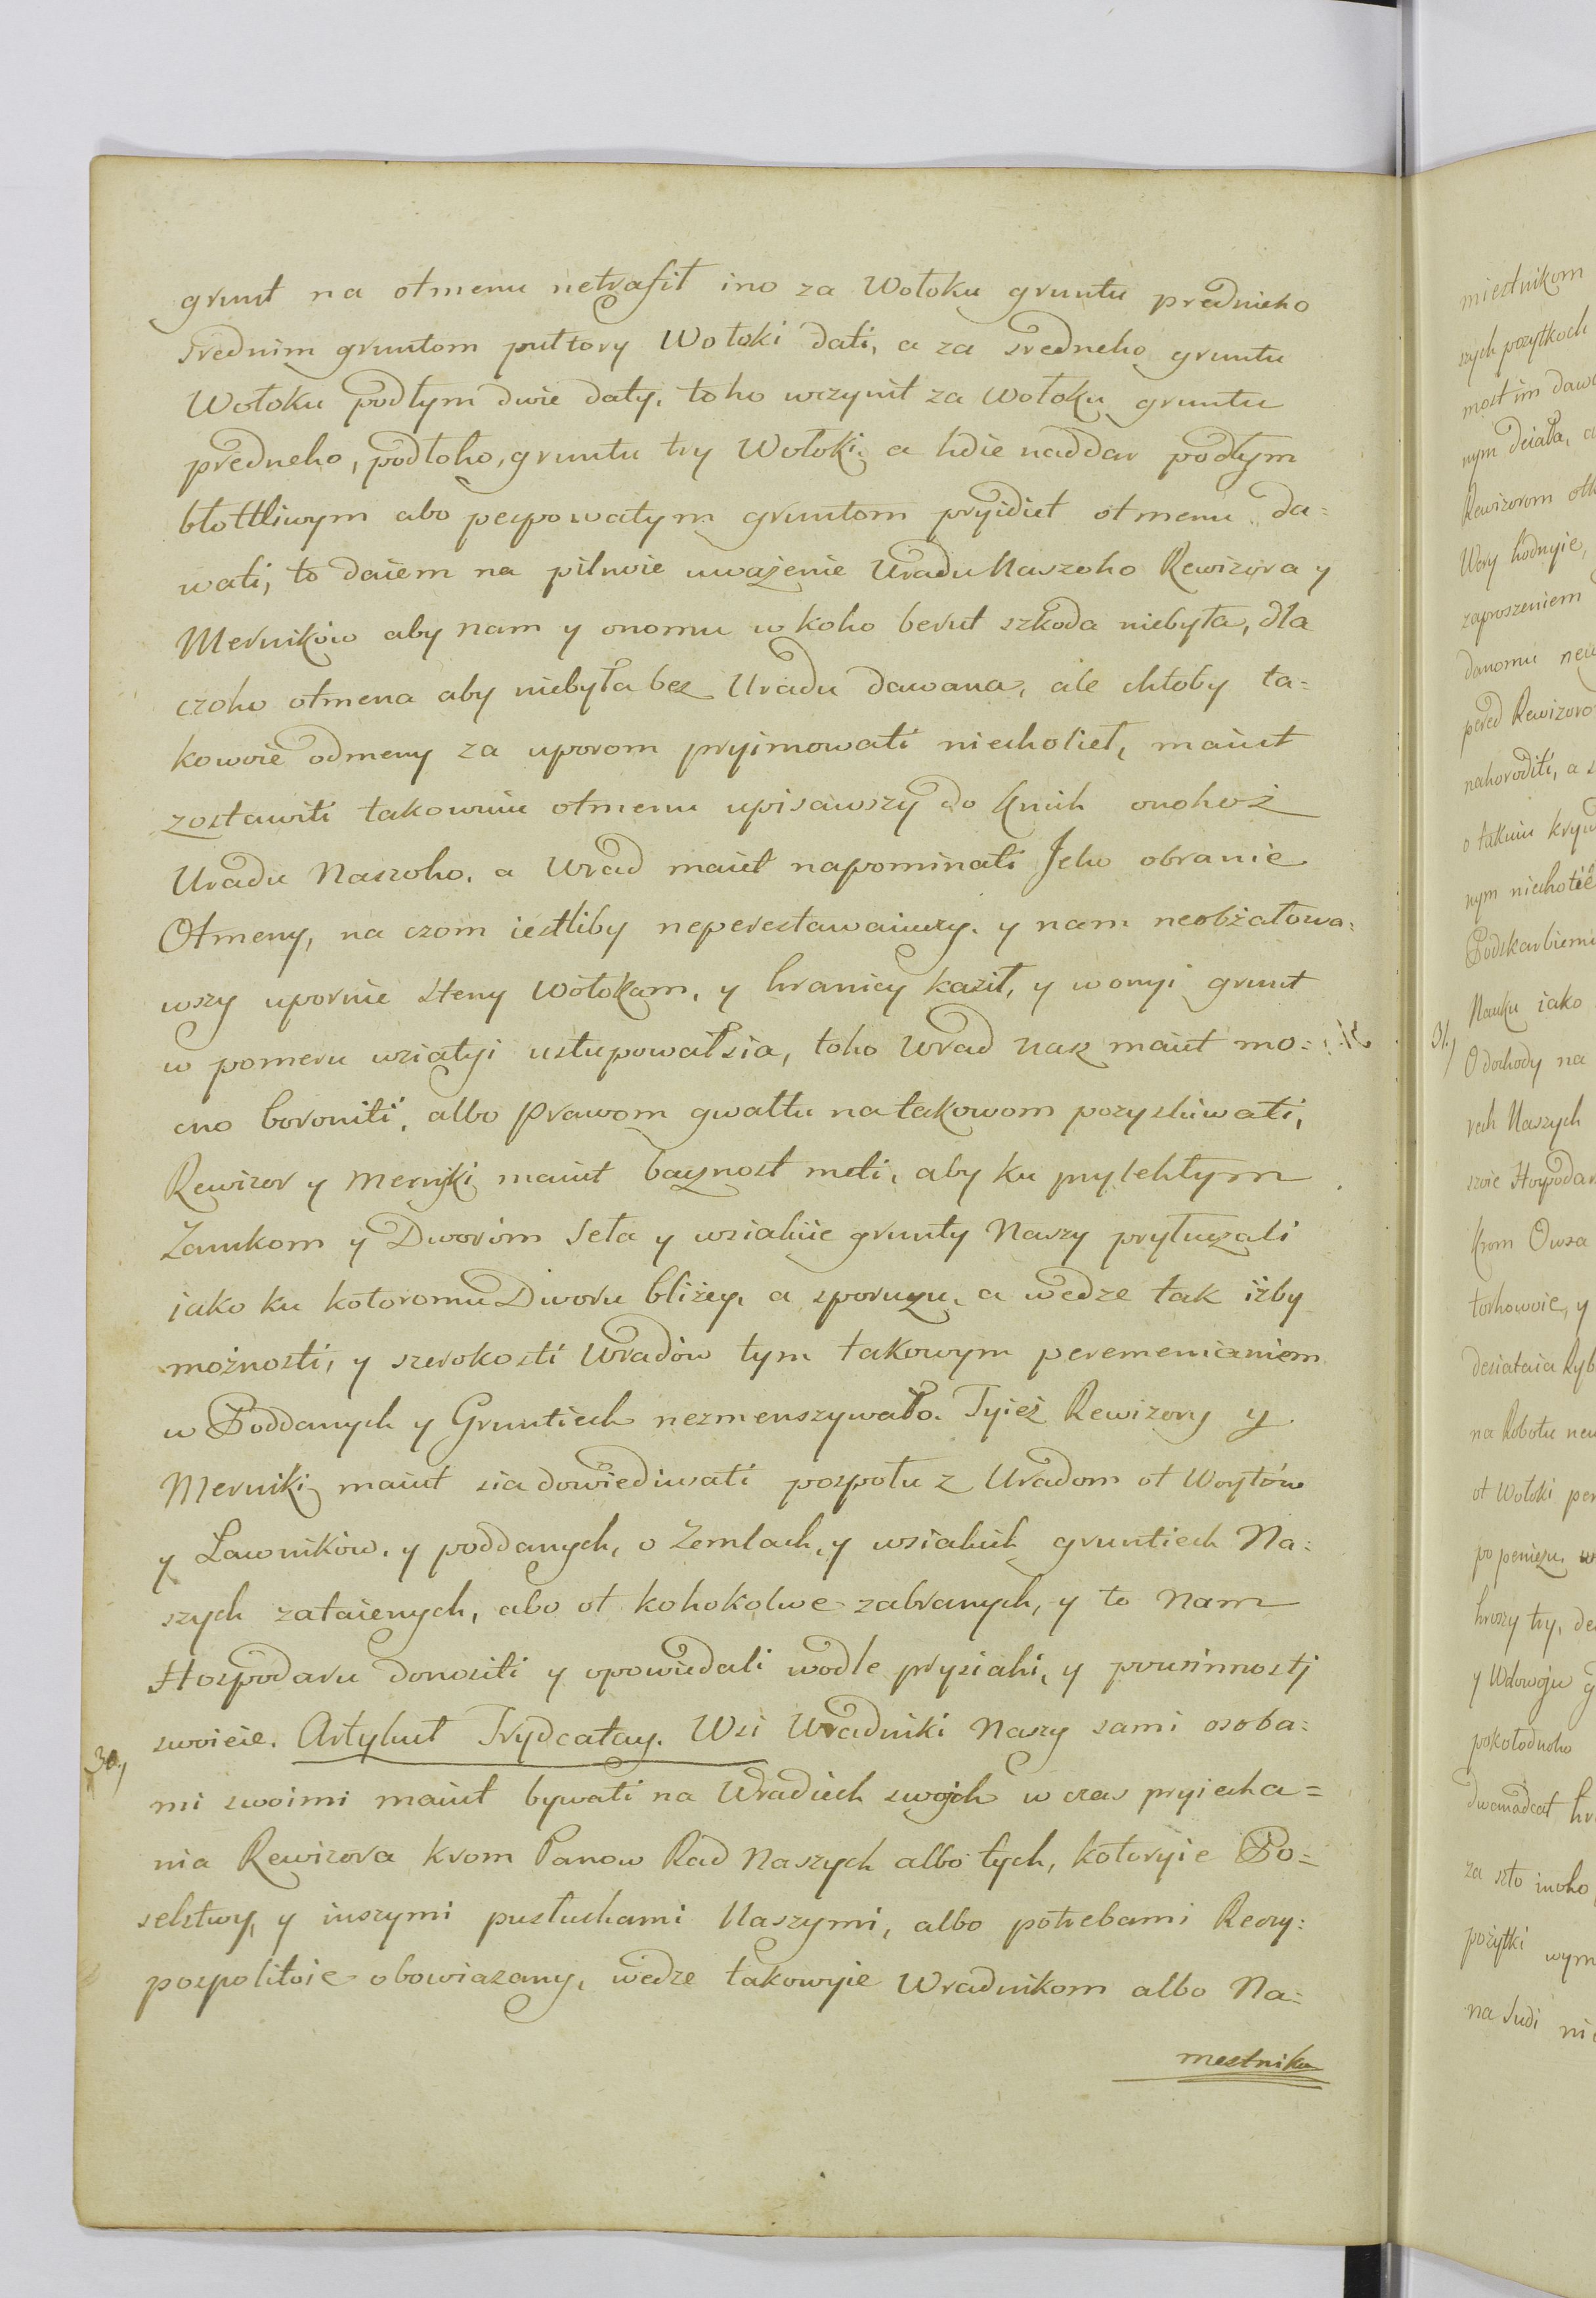 grunt na otmenu netrafit ino za Wołoku gruntu prednieho
srednim gruntom pułtory Wołoki dati, a za sredneho gruntu
Wołoku podłym dwie daty, toho wczynit za Wołoku gruntu
predneho, podłoho, gruntu try Wołoki, a hdie naddar podłym
błottliwym abo pespowatym gruntom pryidiet otmenu da=
wati, to daiem na pilnoie uważenie Uradu Naszoho Rewizora y
Mernikow aby nam y onomu w koho berut szkoda niebyła, dla
czoho otmena aby niebyła bez Uradu dawana, ale chtoby ta=
kowoie odmeny za uporom pryimowati niechotieł, maiut
zostawiti takowuiu otmenu upisawszy do Knih onohoż
Uradu Naszoho, a Urad maiet napominati Jeho obranie
Otmeny, na czom iestliby neperestawaiuczy, y nam neobżałowa=
wszy upornie steny Wołokam, y hranicy kazil, y w onyi grunt
w pomeru wziatyi ustupowałsia, toho Urad Nasz maiet mo=
cno boroniti, albo Prawom gwałtu na takowom pozyskiwati,
Rewizor y Merniki maiut bacznost meti, aby ku prylehłym
Zamkom y Dworom Seła y wsiakiie grunty Naszy pryłuczali
iako ku kotoromu Dworu bliżey, a sporuczu, a wedże tak iżby
możnosti, y szerokosti Uradow tym takowym peremenianiem
w Poddanych y Gruntiech nezmenszywało. Tyież Rewizory y
Merniki maiut sia dowiediwati pospołu z Uradom ot Woytów
y Ławnikow, y poddanych, o Zemlach, y wsiakich gruntiech Na=
szych zataienych, abo ot kohokolwe zabranych, y to Nam
Hospodaru donositi y opowiedati wodle prysiahi, y powinnosti
swoieie. Artykuł Trydcatay. Wsi Uradniki Naszy sami osoba=
30,
mi swoimi maiut bywati na Uradiech swoich w czas pryiecha=
nia Rewizora krom Panow Rad Naszych albo tych, kotoryie Po=
selstwy, y inszymi posłuhami Naszymi, albo potrebami Reczy=
pospolitoie obowiazany, wedże takowyie Uradnikom albo Na=
mestniku
miestnikom
szych pożytkoch
most im dawa
nym
Rewizorom
Wery hodnyie,
zaproszeniem
danomu
pered Rewizoro
nahorodili, a
o takuiu kryw
nym niechotie
Podskarbiemu
Nauku iako
31,
O dochody na
rech Naszych
szoie Hospodar
krom Owsa
torhowoie, y
desiataia Ryb
na Robotu
ot Wołoki
po peniezu,
hroszy try,
y Wdowoju
pokołodnoho
dwanadcat hr
za sto inoho
pożytki wym
na Sudi